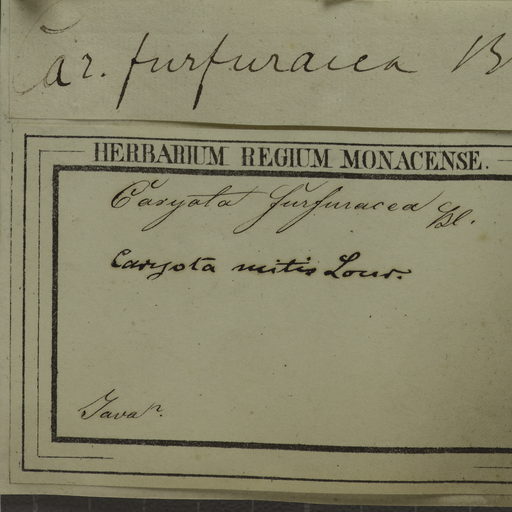 Car. furfuracea B
HERBARIUM REGIUM MONACENSE.
Caryota furfuracea Bl.
Caryota mitis Lour.
Java